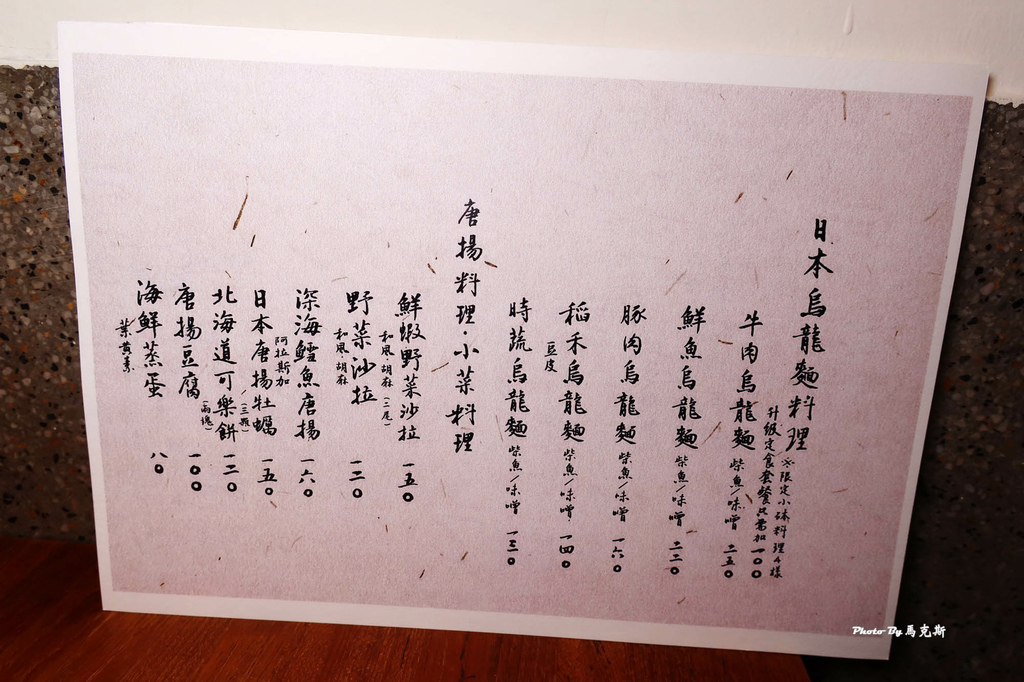 日本烏龍麵料理
※限定小缽料理4樣
升級定食套餐只需加一００
牛肉烏龍麵 柴魚/味噌 二五０
鮮魚烏龍麵 柴魚/味噌 二二０
豚肉烏龍麵 柴魚/味噌 一六０
稻禾烏龍麵 柴魚/味噌 一四０
豆皮
時蔬烏龍麵 柴魚/味噌 一三０
唐揚料理·小菜料理
鮮蝦野菜沙拉 一五０
和風·胡麻(二尾)
野菜沙拉 一二０
和風·胡麻
深海鱈魚唐揚 一六０
阿拉斯加
日本唐揚牡蠣 一五０
(三顆)
北海道可樂餅 一二０
(兩塊)
唐揚豆腐 一００
海鮮蒸蛋 八０
葉黃素
Photo By 馬克斯